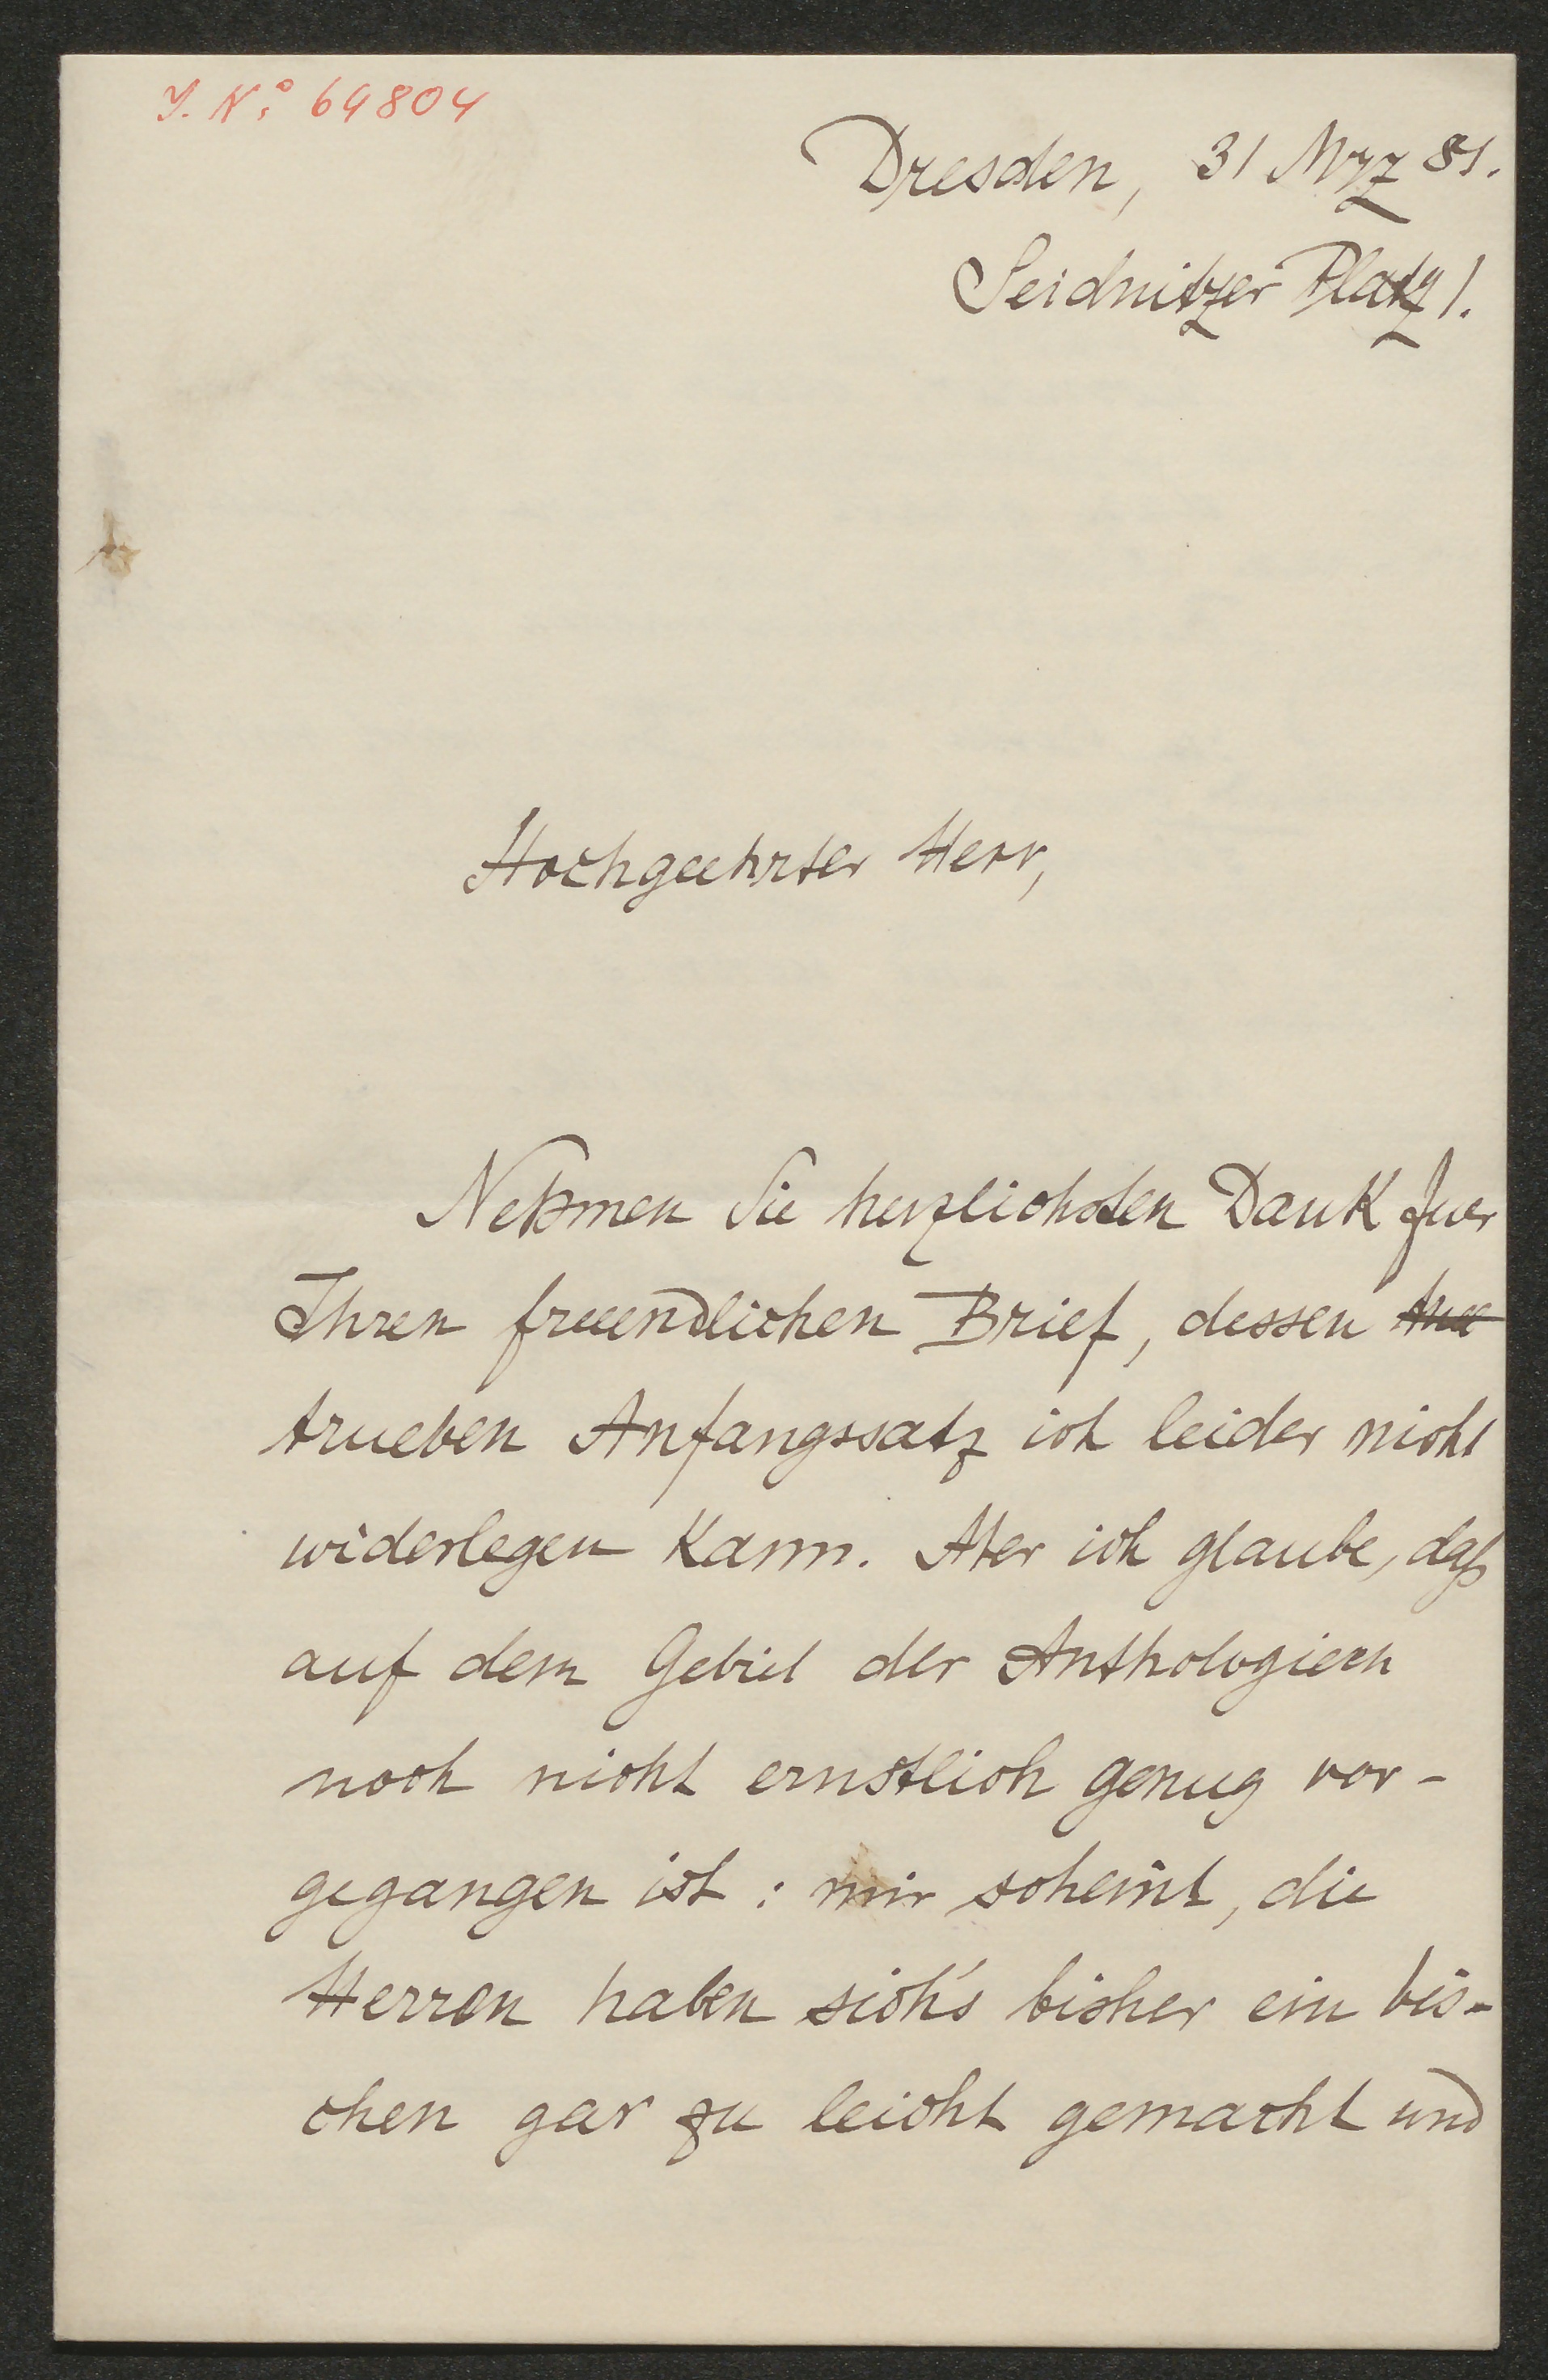 J. N:o 64804
Dresden, 31 Mrz 81.
Seidnitzer Platz 1.
Hochgeehrter Herr,
Nehmen Sie herzlichsten Dank fuer
Ihren freuendlichen Brief, dessen
trueben Anfangssatz ich leider nicht
widerlegen kann. Aber ich glaube, daß
auf dem Gebiet der Anthologieen
noch nicht ernstlich genug vor-
gegangen ist: mir scheint, die
Herren haben sich's bisher ein bis-
chen gar zu leicht gemacht und